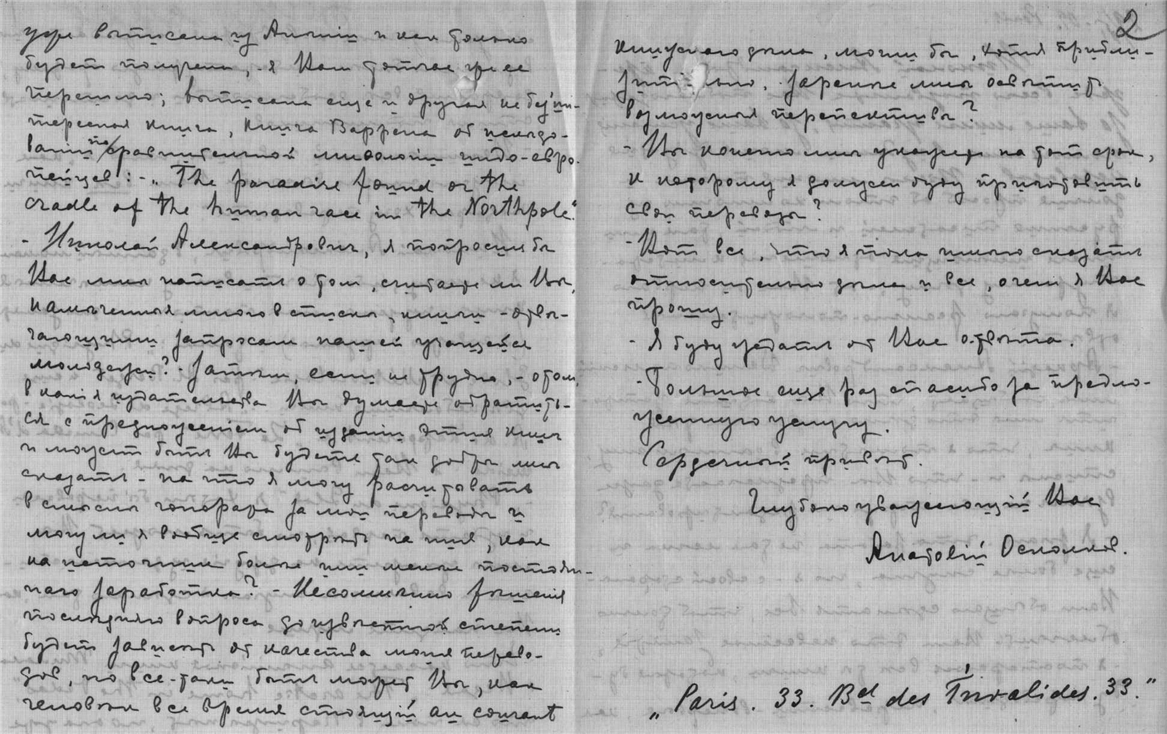 уже выписана из Англіи и как только
будет получена, я Вам тотчас же ее
перешлю; выписана еще и другая не безин-
тересная книга, книга Варрена об изслѣдо-
ваніи по сравнительной миѳологіи индо-евро-
пейцев: - „The paradise found or the
cradle of the human race in the Northpole."
- Николай Александрович, я попросил бы
Вас мнѣ написать о том, считаете ли Вы,
намѣченныя мною в списке, книги - отвѣ-
чающими запросам нашей учащейся
молодежи? - Затѣм, если не трудно, - о том,
в какія издательства Вы думаете обратить-
ся с предложеніем об изданіи этих книг
и может быть Вы будете так добры мнѣ
сказать - на что я могу расчитывать
в смыслѣ гонорара за мои переводы и
могу ли я вообще смотрѣть на них, как
на источник болѣе или менѣе постоян-
наго заработка? - Несомнѣнно рѣшенія
послѣдняго вопроса до извѣстной степени
будет зависѣть от качества моих перево-
дов, но все-таки быть может Вы, как
человѣк все время стоящій au courant
2
книжнаго дѣла, могли бы, хотя прибли-
зительно, заранѣе мнѣ освѣтить
возможныя перспективы?
- Вы конечно мнѣ укажете на тот срок,
к которому я должен буду приготовить
свои переводы?
- Вот все, что я пока имѣю сказать
относительно дѣла и все, о чем я Вас
прошу.
- Я буду ждать от Вас отвѣта.
- Большое еще раз спасибо за предло-
женную услугу.
Сердечный привѣт.
Глубоко уважающій Вас
Анатолій
„Paris. 33. Bd des Invalides. 33."